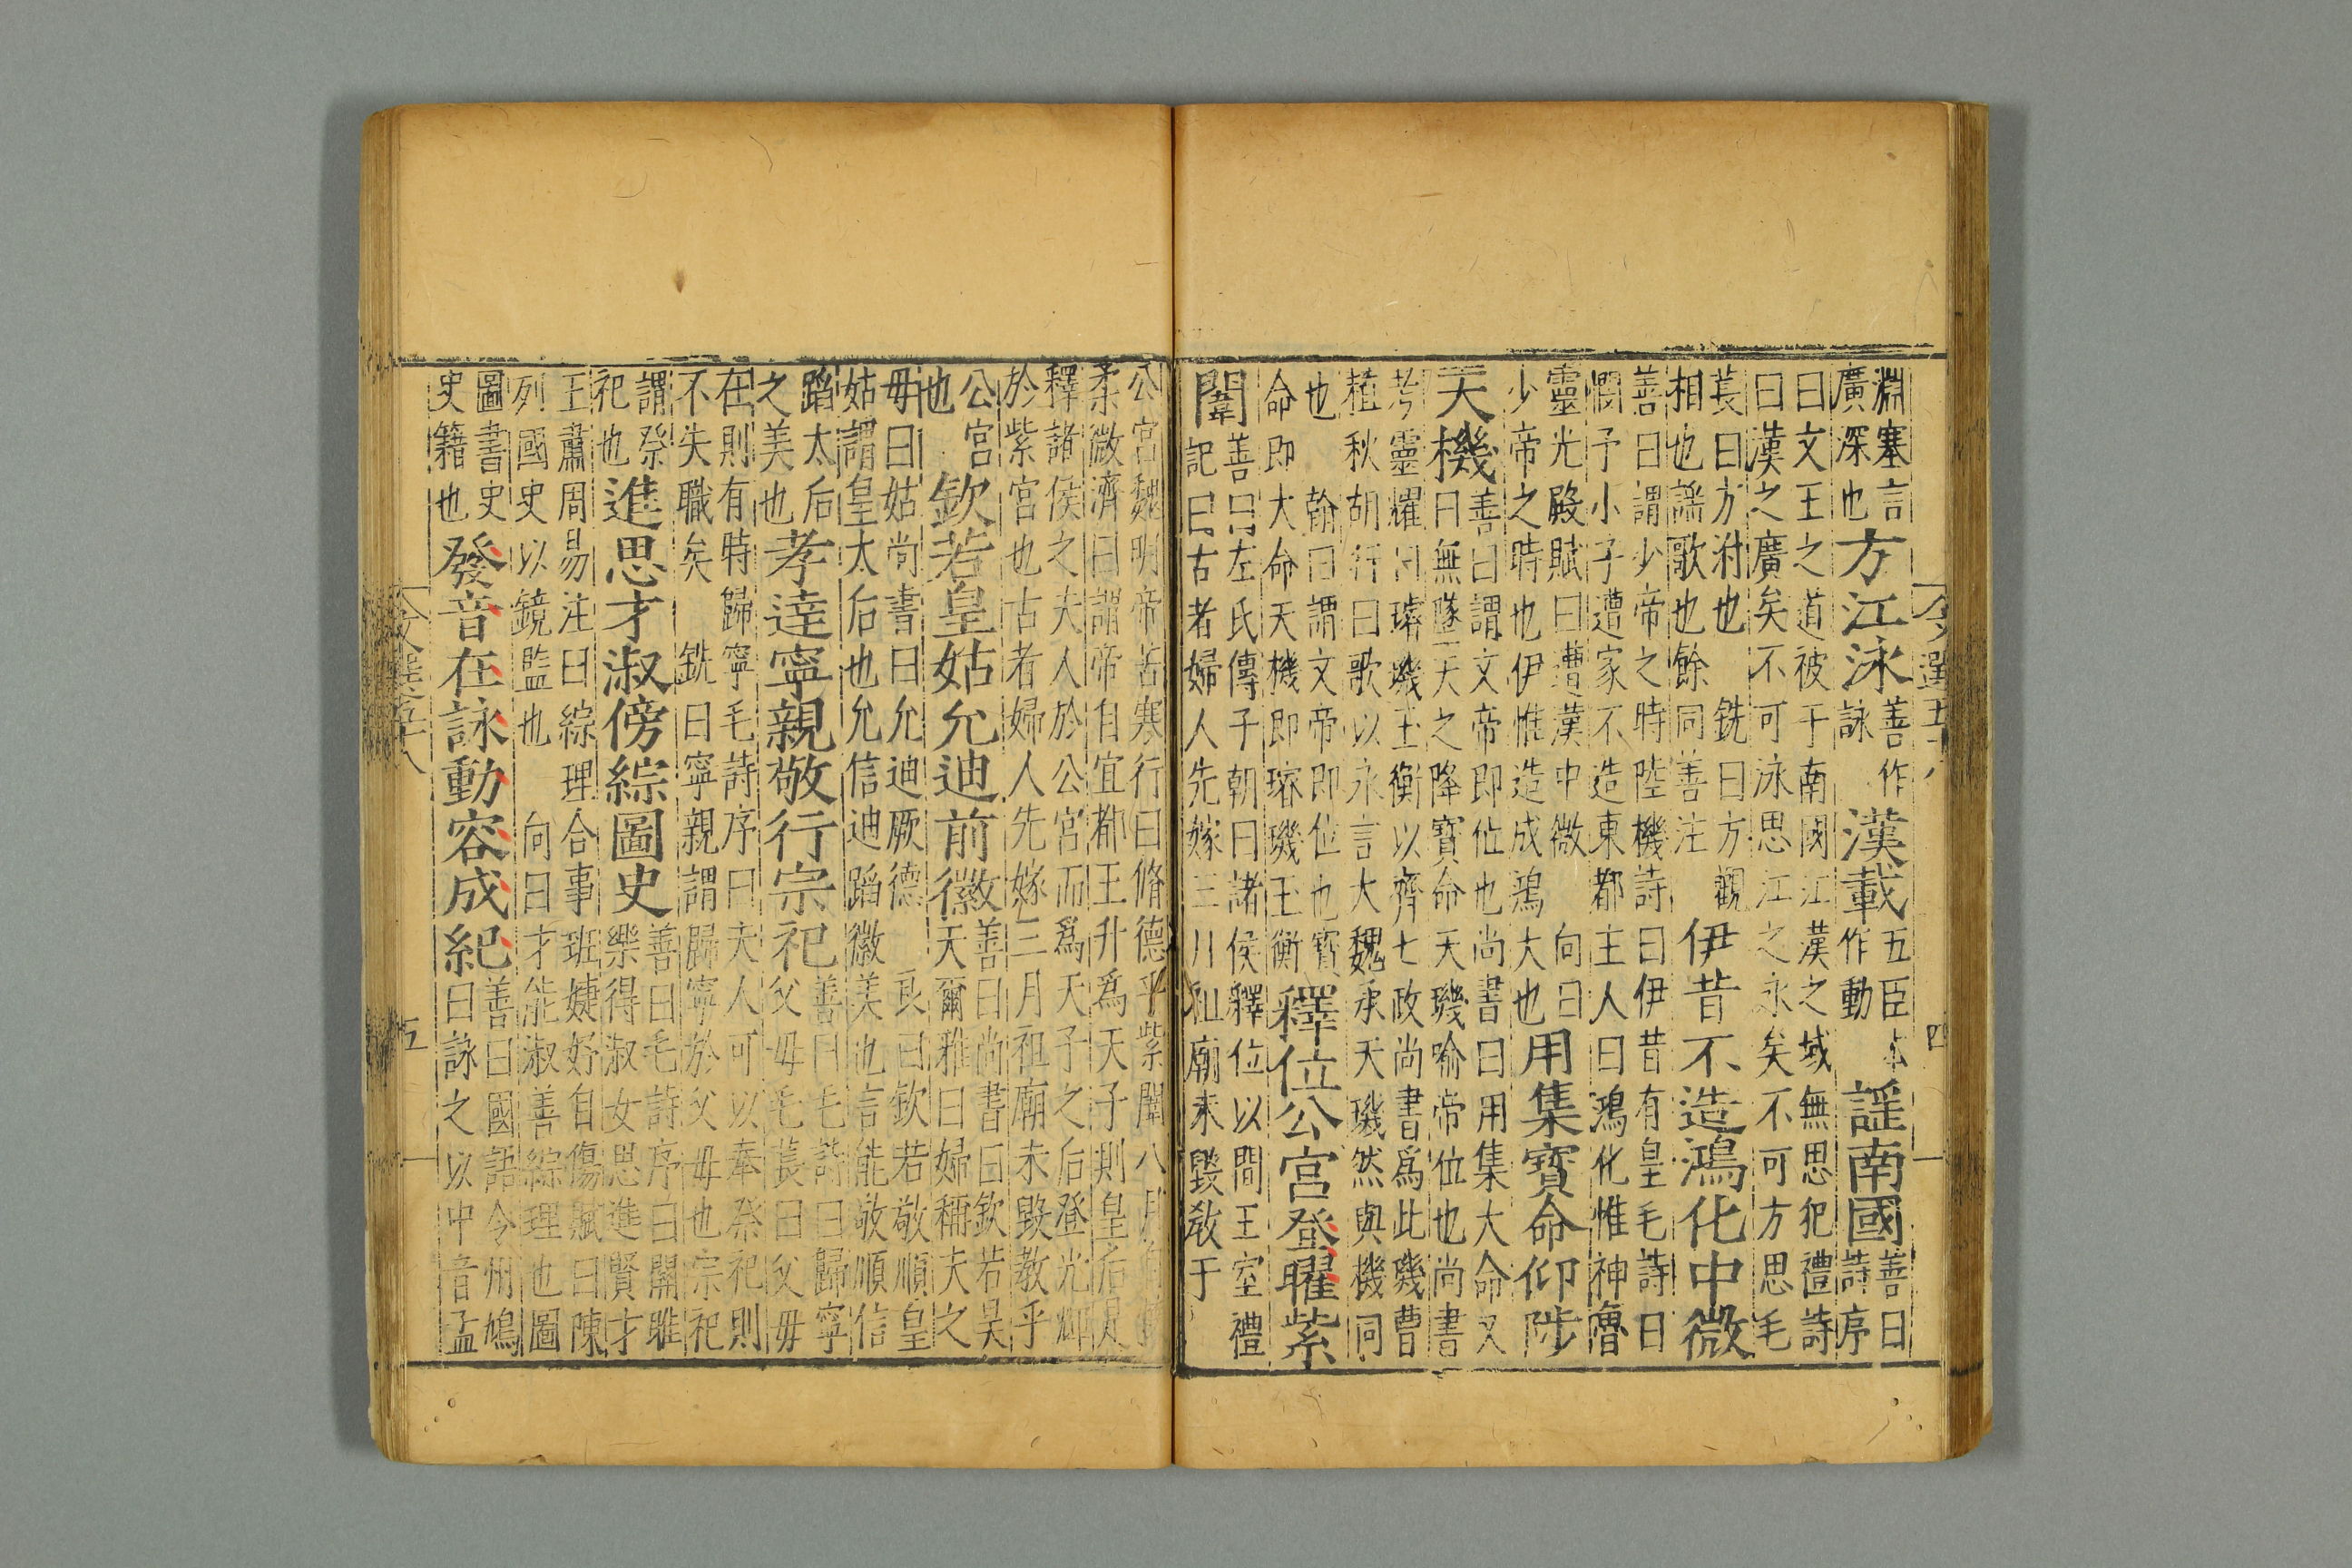 淵塞言
廣深也
方江泳
善作
詠
漢載
五臣本
作動
謡南國
善曰
詩序
曰文王之道被于南國江漢之域無思犯禮詩
曰漢之廣矣不可泳思江之永矣不可方思毛
萇曰方泭也 銑曰方觀
相也謡歌也餘同善注
伊昔不造鴻化中微
善曰謂少帝之時陸機詩曰伊昔有皇毛詩曰
憫予小子遭家不造東都主人曰鴻化惟神魯
靈光殿賦曰遭漢中微 向曰
少帝之時也伊惟造成鴻大也
用集寳命仰陟
天機
善曰謂文帝即位也尚書曰用集大命又
曰無墜天之降寳命天璣喻帝位也尚書
考靈耀曰璿璣玉衡以齊七政尚書爲此璣曹
植秋胡行曰歌以永言大魏承天璣然與機同
也 翰曰謂文帝即位也寳
命即大命天機即璿璣玉衡
釋位公宮登曜紫
闈
善曰左氏傳子朝曰諸侯釋位以間王室禮
記曰古者婦人先嫁三月祖廟未毀教于
公宮魏明帝苦寒行曰脩德平紫闈八月
柔微濟曰謂帝自宜都王升爲天子則皇后是
釋諸侯之夫人於公宮而爲天子之后登光輝
於紫宮也古者婦人先嫁三月祖廟未毀教乎
公宮
也
欽若皇姑允迪前徽
善曰尚書曰欽若昊
天爾雅曰婦稱夫之
毋曰姑尚書曰允迪厥德 良曰欽若敬順皇
姑謂皇太后也允信迪蹈徽美也言能敬順信
蹈太后
之美也
孝達寧親敬行宗祀
善曰毛詩曰歸寧
父毋毛萇曰父毋
在則有時歸寧毛詩序曰夫人可以奉祭祀則
不失職矣 銑曰寧親謂歸寧於父毋也宗祀
謂祭
祀也
進思才淑傍綜圖史
善曰毛詩序曰關雎
樂得淑女思進賢才
王肅周易注曰綜理合事班婕妤自傷賦曰陳
列國史以鏡監也 向曰才能淑善綜理也圖
圖書史
史籍也
發音在詠動容成紀
善曰國語今州鳩
曰詠之以中音孟
文選五十八
四
文選五十八
五